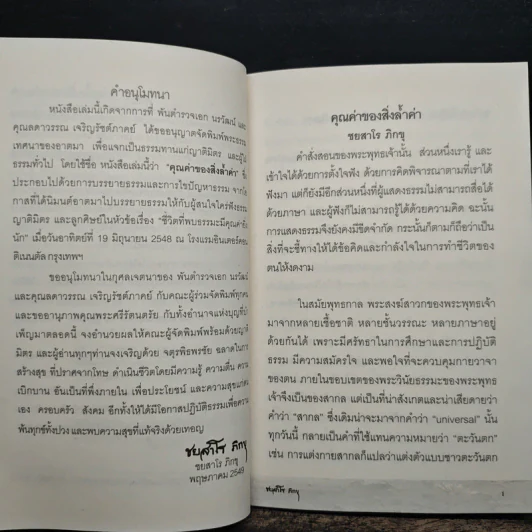 คำอนุโมทนา
หนังสือเล่มนี้เกิดจากการที่ พันตำรวจเอก นรวัฒน์ และ
คุณลดาวรรณ เจริญรัชต์ภาคย์ ได้ขออนุญาตจัดพิมพ์พระธรรม
เทศนาของอาตมา เพื่อแจกเป็นธรรมทานแก่ญาติมิตร และผู้ใฝ่
ธรรมทั่วไป โดยใช้ชื่อ หนังสือเล่มนี้ว่า "คุณค่าของสิ่งล้ำค่า" ซึ่ง
ประกอบไปด้วยการบรรยายธรรมและการไขปัญหาธรรม จาก
กาสที่ได้นิมนต์อาตมาไปบรรยายธรรมให้กับผู้สนใจใคร่ฟังธรรม
ญาติมิตร และลูกศิษย์ในหัวข้อเรื่อง "ชีวิตที่พบธรรมะมีคุณค่า
นัก" เมื่อวันอาทิตย์ที่ 19 มิถุนายน 2548 ณ โรงแรมอินเตอร์คอน
ติเนนตัล กรุงเทพฯ
ขออนุโมทนาในกุศลเจตนาของ พันตำรวจเอก นรวัฒน์
และคุณลดาวรรณ เจริญรัชต์ภาคย์ กับคณะผู้ร่วมจัดพิมพ์ทุกคน
และขออานุภาพคุณพระศรีรัตนตรัย กับทั้งอำนาจแห่งบุญที่
เพ็ญมาตลอดนี้ จงอำนวยผลให้คณะผู้จัดพิมพ์พร้อมด้วยญาติ
มิตร และผู้อ่านทุกๆท่านจงเจริญด้วย จตุรพิธพรชัย ฉลาดในการ
สร้างสุข ที่ปราศจากโทษ ดำเนินชีวิตโดยมีความรู้ ความตื่น ความ
เบิกบาน อันเป็นที่พึ่งภายใน เพื่อประโยชน์ และความสุขแก่ตน
เอง ครอบครัว สังคม อีกทั้งให้ได้มีโอกาสปฏิบัติธรรมเพื่อความ
พ้นทุกข์ทั้งปวง และพบความสุขที่แท้จริงด้วยเทอญ
ชยสาโร ภิกขุ
ชยสาโร ภิกขุ
พฤษภาคม 2549
คุณค่าของสิ่งล้ำค่า
ชยสาโร ภิกขุ
คำสั่งสอนของพระพุทธเจ้านั้น ส่วนหนึ่งเรารู้ และ
เข้าใจได้ด้วยการตั้งใจฟัง ด้วยการคิดพิจารณาตามที่เราได้
ฟังมา แต่ก็ยังมีอีกส่วนหนึ่งที่ผู้แสดงธรรมไม่สามารถสื่อได้
ด้วยภาษา และผู้ฟังก็ไม่สามารถรู้ได้ด้วยความคิด ฉะนั้น
การแสดงธรรมจึงยังคงมีขีดจำกัด กระนั้นก็ตามก็ถือว่าเป็น
สิ่งที่จะชี้ทางให้ได้ข้อคิดและกำลังใจในการทำชีวิตของ
ตนให้งดงาม
ในสมัยพุทธกาล พระสงฆ์สาวกของพระพุทธเจ้า
มาจากหลายเชื้อชาติ หลายชั้นวรรณะ หลายภาษาอยู่
ด้วยกันได้ เพราะมีศรัทธาในการศึกษาและการปฏิบัติ
ธรรม มีความสมัครใจ และพอใจที่จะควบคุมกายวาจา
ของตน ภายในขอบเขตของพระวินัยธรรมะของพระพุทธ
เจ้าจึงเป็นของสากล แต่เป็นที่น่าสังเกตและน่าเสียดายว่า
คำว่า "สากล" ซึ่งเดิมน่าจะมาจากคำว่า "universal" นั้น
ทุกวันนี้ กลายเป็นคำที่ใช้แทนความหมายว่า "ตะวันตก"
เช่น การแต่งกายสากลก็แปลว่าแต่งตัวแบบชาวตะวันตก
ชยสาโร ภิกขุ
1